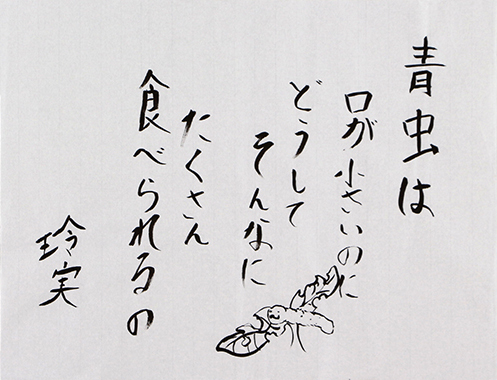 青虫は
口が小さいのに
どうして
そんなに
たくさん
食べられるの
玲実